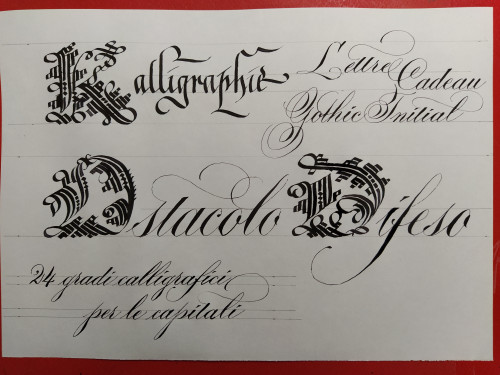 Kalligraphie
Lettre Cadeau
Gothic Initial
Ostacolo Difeso
24 gradi calligrafici
per le capitali